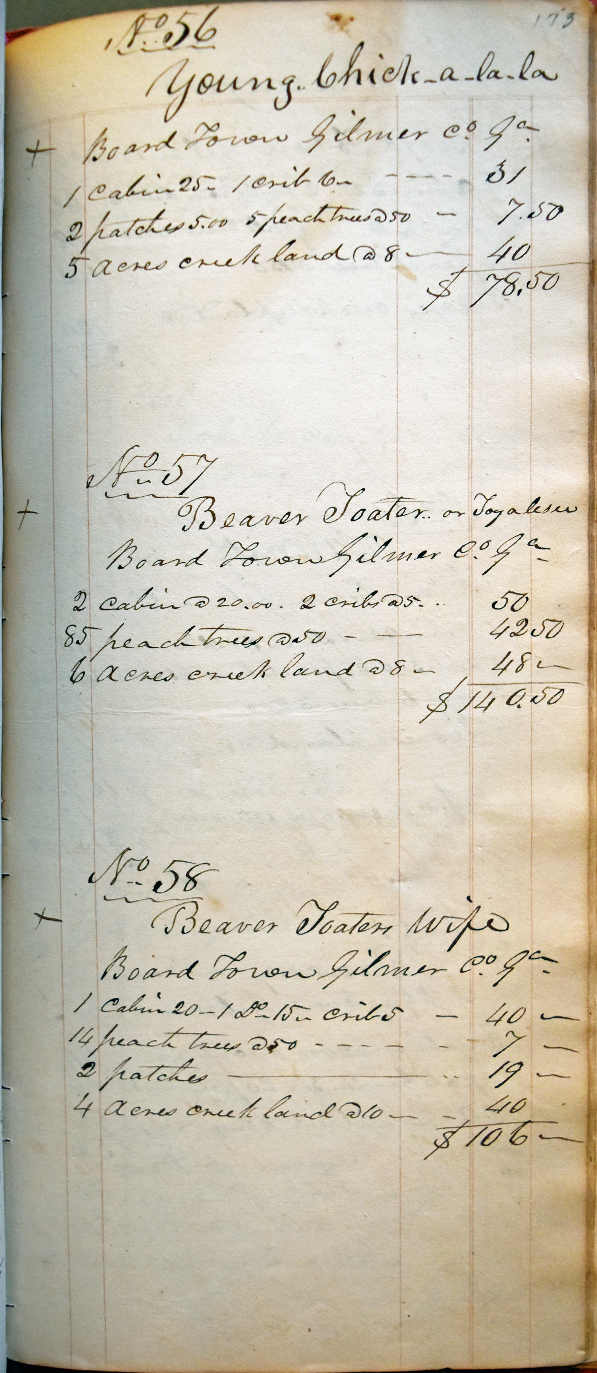 173
No 56
Young Chick-a-la-la
+ Board Town Gilmer Co Ga
1 cabin 25- 1 crib 6- ---- 31
2 patches 5.00 5 peach trees @50 - 7.50
5 Acres creek land @8 — 40
$ 78.50
No 57
+ Beaver Toater.. or Toyalesee
Board Town Gilmer Co Ga
2 cabin @ 20.00. 2 cribs @5. .. 50
85 peach trees @50 - — 42 50
6 Acres creek land @8 - 48 -
$ 140.50
No 58
+ Beaver Toaters Wife
Board Town Gilmer Co Ga
1 cabin 20 - 1 Do - 15 - crib 5 - 40 -
14 peach trees @50 - - - - - - 7 -
2 patches ——— .. 19 -
4 Acres creek land @10 - - 40
$ 106 -